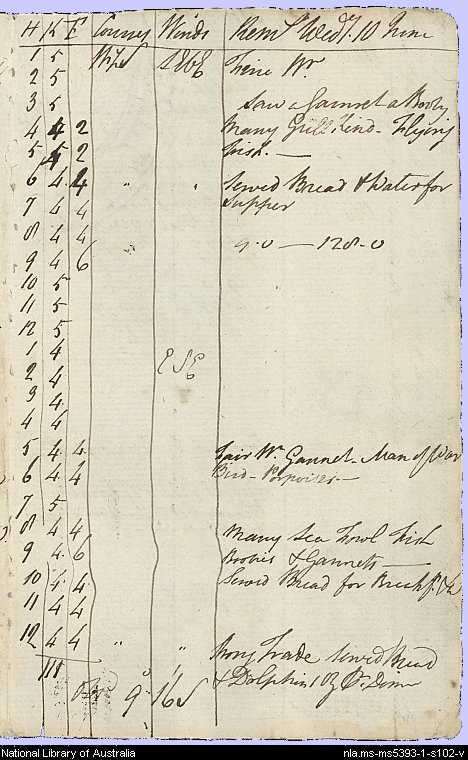 H K F Courses Winds Rem.s Wed.y 10 June
1 5 WbS SEbE Fine Wr.
2 5
3 5 Saw a Gannet a Booby
4 4 2 Many Gull kind - Flying
5 4 2 Fish. —
6 4 4 " " Served Bread & Water for
7 4 4 Supper
8 4 4 9.0 — 128.0
9 4 6
10 5
11 5
12 5
1 4 ESE
2 4
3 4
4 4
5 4 4 Fair Wr. Gannet - Man of War
6 4 4 Bird - Porpoises —
7 5
8 4 4 Many Sea Fowl Fish
9 4 6 Boobies & Gannets —
10 4 4 Served Bread for Breakf.t
11 4 4
12 4 4 " " Strong Trade served Bread
111 & Dolphin 1 oz Dinner
9 16 S
National Library of Australia nla.ms-ms5393-1-s102-v